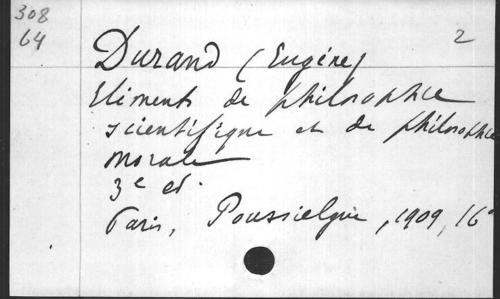 308
64
2
Durand (Eugène)
Eléments de philosophie
scientifique et de philosophie
morale
3e ed.
Paris, Poussielgue, 1909, 16°